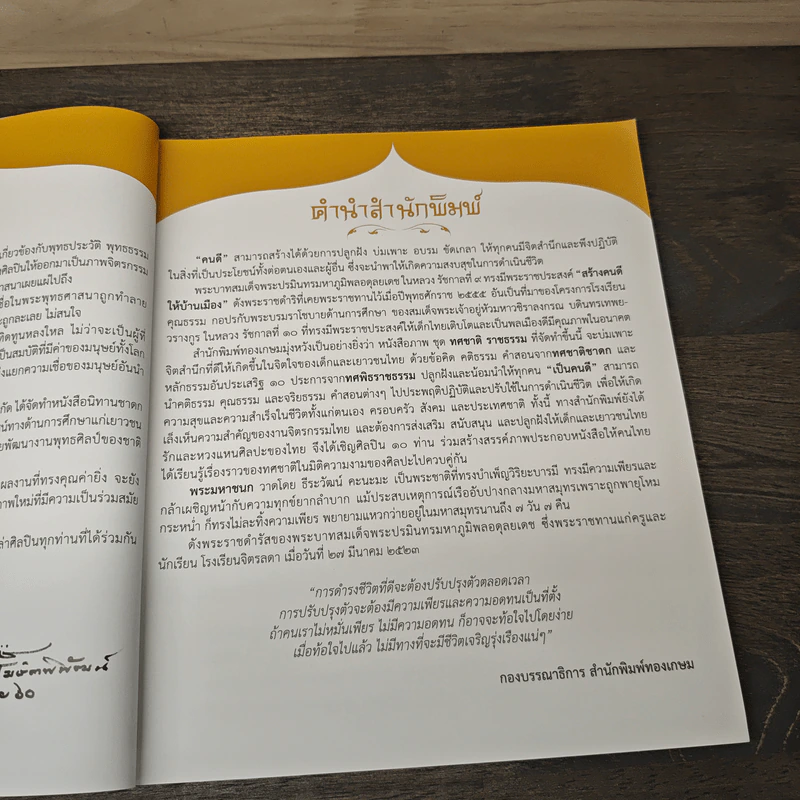 เกี่ยวข้องกับพุทธประวัติ พุทธธรรม
ศิลปินให้ออกมาเป็นภาพจิตรกรรม
าสนาเผยแผ่ไปถึง
ชื่อในพระพุทธศาสนาถูกทำลาย
ะถูกละเลย ไม่สนใจ
ทิดทูนหลงใหล ไม่ว่าจะเป็นผู้ที่
ป็นสมบัติที่มีค่าของมนุษย์ทั้งโลก
งแยกความเชื่อของมนุษย์อันนำ
กัด ได้จัดทำหนังสือนิทานชาดก
น์ทางด้านการศึกษาแก่เยาวชน
ยพัฒนางานพุทธศิลป์ของชาติ
ผลงานที่ทรงคุณค่ายิ่ง จะยัง
าพใหม่ที่มีความเป็นร่วมสมัย
ล่าศิลปินทุกท่านที่ได้ร่วมกัน
คำนำสำนักพิมพ์
"คนดี" สามารถสร้างได้ด้วยการปลูกฝัง บ่มเพาะ อบรม ขัดเกลา ให้ทุกคนมีจิตสำนึกและพึงปฏิบัติ
ในสิ่งที่เป็นประโยชน์ทั้งต่อตนเองและผู้อื่น ซึ่งจะนำพาให้เกิดความสงบสุขในการดำเนินชีวิต
พระบาทสมเด็จพระปรมินทรมหาภูมิพลอดุลยเดช ในหลวง รัชกาลที่ ๙ ทรงมีพระราชประสงค์ "สร้างคนดี
ให้บ้านเมือง" ดังพระราชดำริที่เคยพระราชทานไว้เมื่อปีพุทธศักราช ๒๕๕๕ อันเป็นที่มาของโครงการโรงเรียน
คุณธรรม กอปรกับพระบรมราโชบายด้านการศึกษา ของสมเด็จพระเจ้าอยู่หัวมหาวชิราลงกรณ บดินทรเทพย-
วรางกูร ในหลวง รัชกาลที่ ๑๐ ที่ทรงมีพระราชประสงค์ให้เด็กไทยเติบโตและเป็นพลเมืองดีมีคุณภาพในอนาคต
สำนักพิมพ์ทองเกษมมุ่งหวังเป็นอย่างยิ่งว่า หนังสือภาพ ชุด ทศชาติ ราชธรรม ที่จัดทำขึ้นนี้ จะบ่มเพาะ
จิตสำนึกที่ดีให้เกิดขึ้นในจิตใจของเด็กและเยาวชนไทย ด้วยข้อคิด คติธรรม คำสอนจากทศชาติชาดก และ
หลักธรรมอันประเสริฐ ๑๐ ประการจากทศพิธราชธรรม ปลูกฝังและน้อมนำให้ทุกคน "เป็นคนดี" สามารถ
นำคติธรรม คุณธรรม และจริยธรรม คำสอนต่างๆ ไปประพฤติปฏิบัติและปรับใช้ในการดำเนินชีวิต เพื่อให้เกิด
ความสุขและความสำเร็จในชีวิตทั้งแก่ตนเอง ครอบครัว สังคม และประเทศชาติ ทั้งนี้ ทางสำนักพิมพ์ยังได้
เล็งเห็นความสำคัญของงานจิตรกรรมไทย และต้องการส่งเสริม สนับสนุน และปลูกฝังให้เด็กและเยาวชนไทย
รักและหวงแหนศิลปะของไทย จึงได้เชิญศิลปิน ๑๐ ท่าน ร่วมสร้างสรรค์ภาพประกอบหนังสือให้คนไทย
ได้เรียนรู้เรื่องราวของทศชาติในมิติความงามของศิลปะไปควบคู่กัน
พระมหาชนก วาดโดย ธีระวัฒน์ คะนะมะ เป็นพระชาติที่ทรงบำเพ็ญวิริยะบารมี ทรงมีความเพียรและ
กล้าเผชิญหน้ากับความทุกข์ยากลำบาก แม้ประสบเหตุการณ์เรืออับปางกลางมหาสมุทรเพราะถูกพายุโหม
กระหน่ำ ก็ทรงไม่ละทิ้งความเพียร พยายามแหวกว่ายอยู่ในมหาสมุทรนานถึง ๗ วัน ๗ คืน
ดังพระราชดำรัสของพระบาทสมเด็จพระปรมินทรมหาภูมิพลอดุลยเดช ซึ่งพระราชทานแก่ครูและ
นักเรียน โรงเรียนจิตรลดา เมื่อวันที่ ๒๗ มีนาคม ๒๕๒๓
"การดำรงชีวิตที่ดีจะต้องปรับปรุงตัวตลอดเวลา
การปรับปรุงตัวจะต้องมีความเพียรและความอดทนเป็นที่ตั้ง
ถ้าคนเราไม่หมั่นเพียร ไม่มีความอดทน ก็อาจจะท้อใจไปโดยง่าย
เมื่อท้อใจไปแล้ว ไม่มีทางที่จะมีชีวิตเจริญรุ่งเรืองแน่ๆ"
กองบรรณาธิการ สำนักพิมพ์ทองเกษม